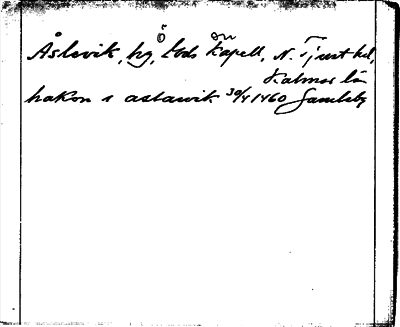 Åslevik, hg, Ö Eds Kapell, N. Tjust hd,
Kalmar län
hakon i aslawik 30/4 1460 Gamleby